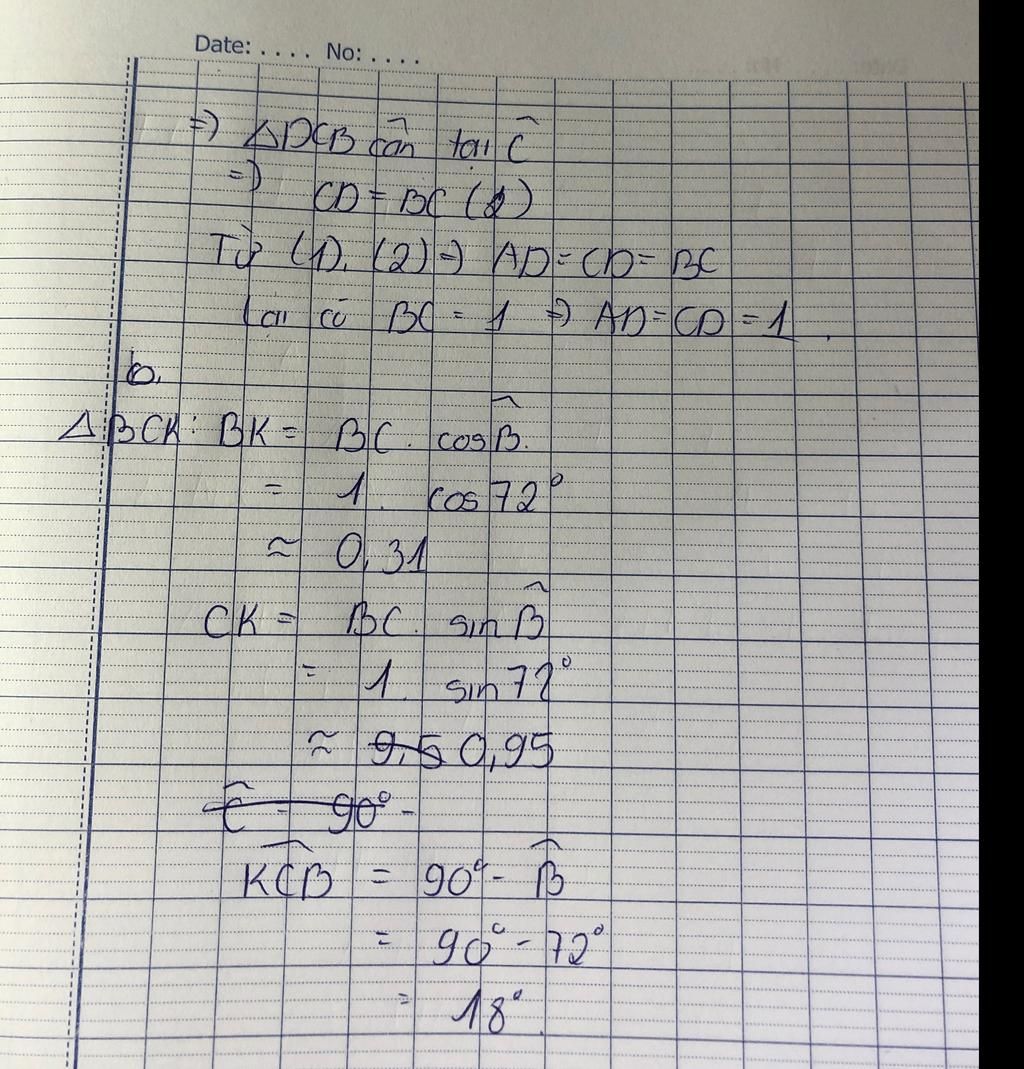 Date: .... No: ....
=) ΔDCB cân tại Ĉ
=) CD = BC (2)
Từ (1), (2) =) AD = CD = BC
Lại có BC = 1 =) AD = CD = 1.
b,
ΔBCK: BK = BC. cos B̂.
= 1. cos 72°
≈ 0,31
CK = BC. sin B̂
= 1. sin 72°
≈ 9,5 0,95
Ĉ = 90° -
KĈB = 90° - B̂
= 90° - 72°
= 18°.